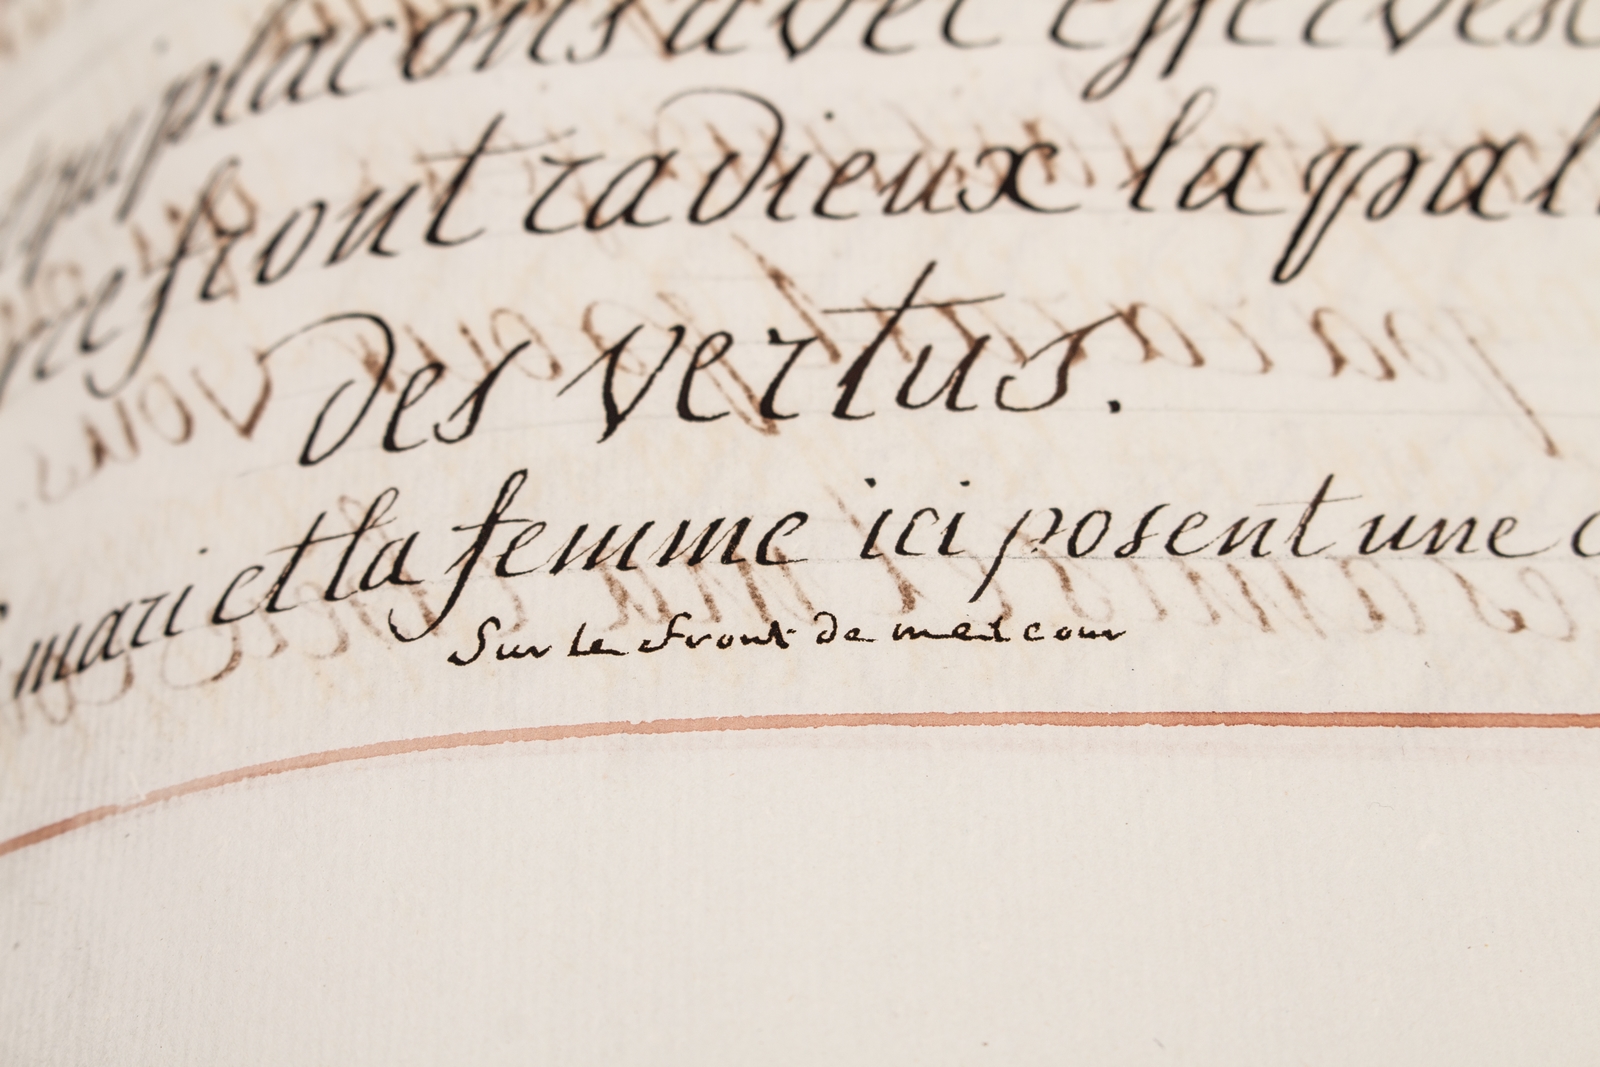 plaçons avec efferves
ce front radieux la pal
des vertus.
mari et la femme ici posent une c
Sur le front de melcour